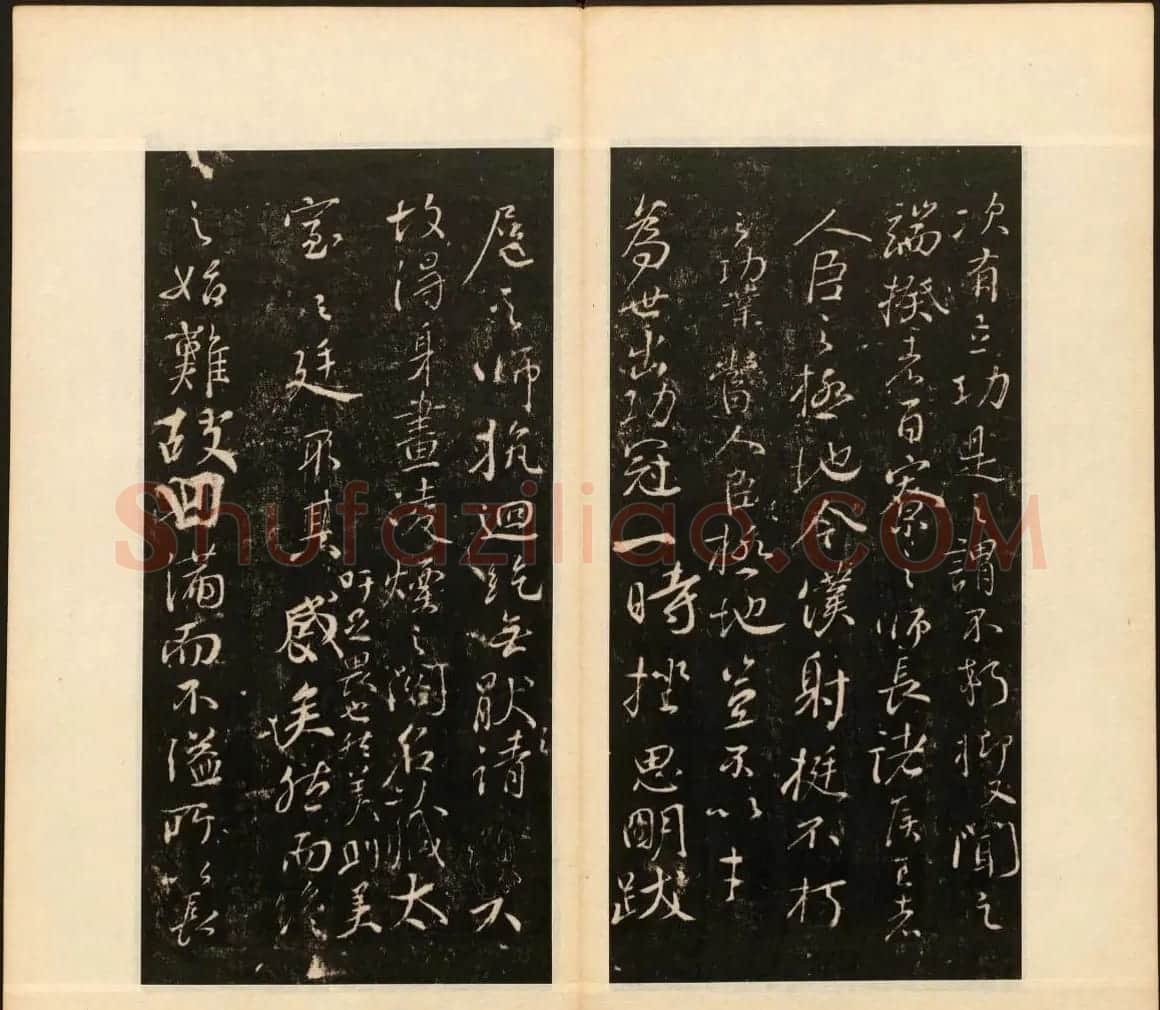 次有立功是之謂不朽抑又聞之
端揆者百寮之師長諸侯王者
人臣之極地今僕射挺不朽
之功業當人臣極地豈不以才
為世出功冠一時挫思明跋
扈之師抗迴紇無厭之請
故得身畫凌煙之閣名藏太
吁足畏也然美則美
室之廷矣然而終
之始難故曰滿而不溢所以長
Shufaziliao.COM